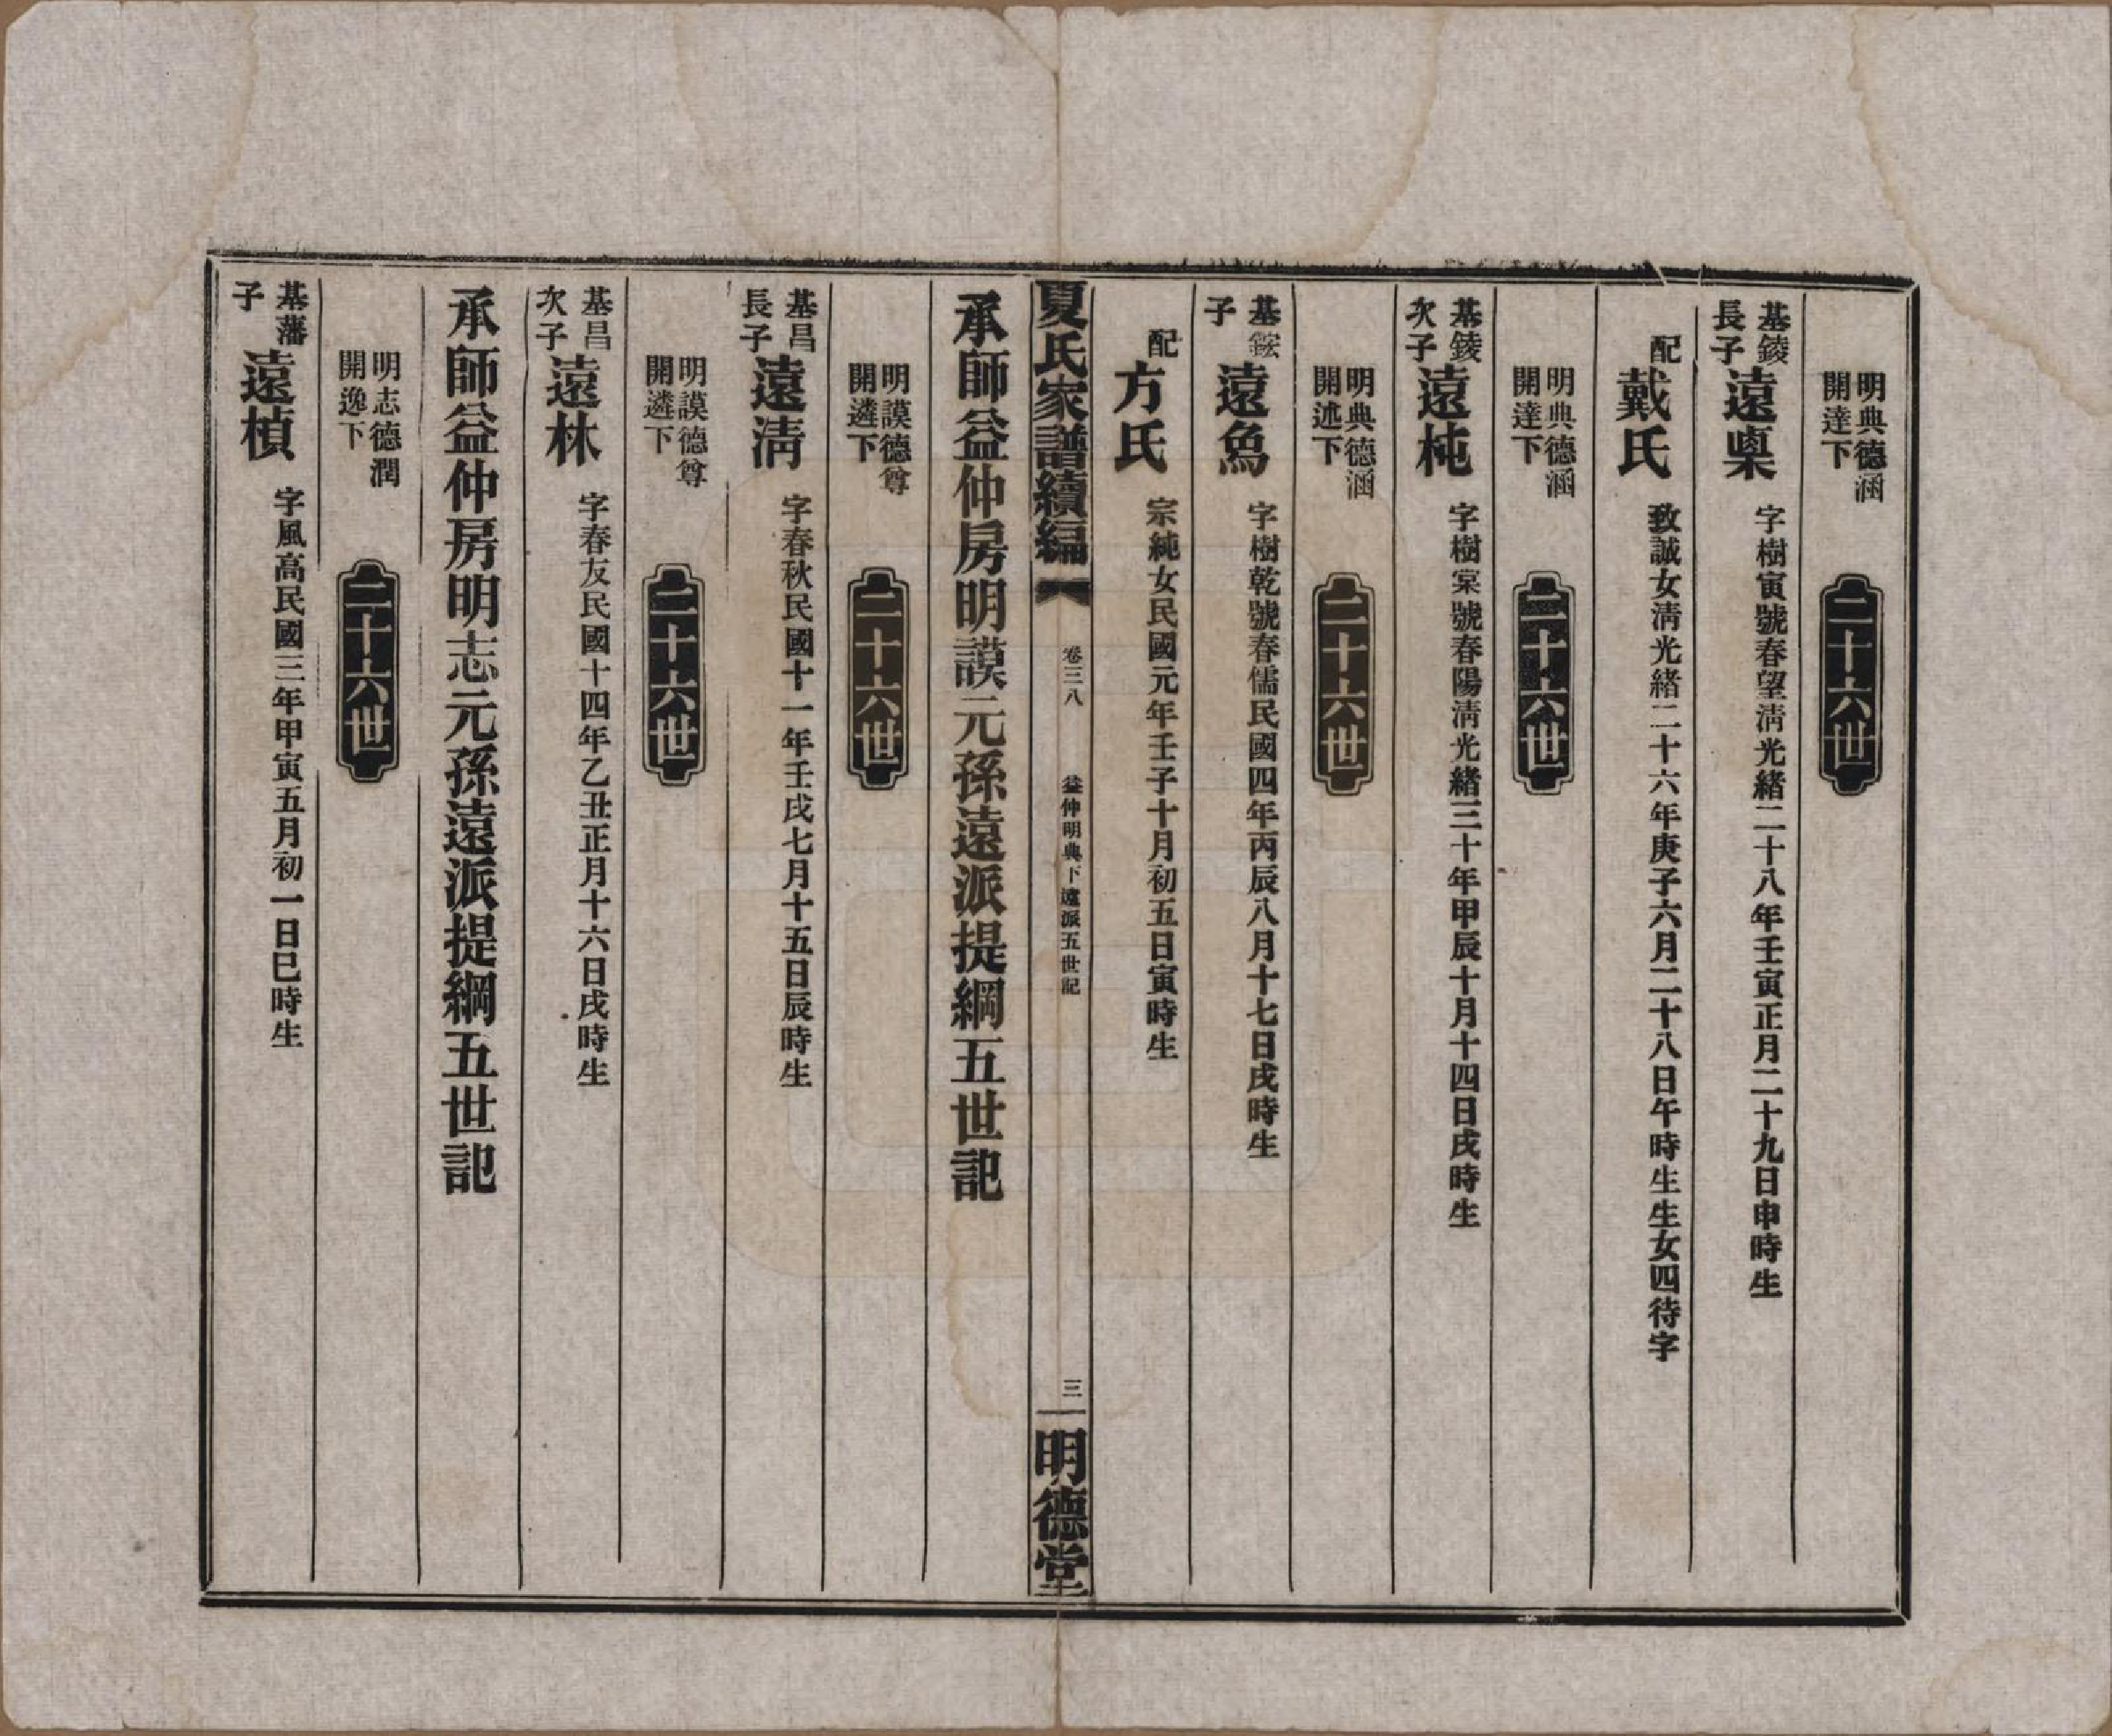 明典德涵
開達下
二十六世
基錂
長子
遠㮚 字樹寅號春望淸光緒二十八年壬寅正月二十九日申時生
配
戴氏 致誠女淸光緒二十六年庚子六月二十八日午時生生女四待字
明典德涵
開達下
二十六世
基錂
次子
遠杶 字樹棠號春陽淸光緒三十年甲辰十月十四日戌時生
明典德涵
開述下
二十六世
基銨
子
遠𩵋 字樹乾號春儒民國四年丙辰八月十七日戌時生
配
方氏 宗純女民國元年壬子十月初五日寅時生
夏氏家譜續編 卷三八 益仲明典下遠派五世記 三 明德堂
承師益仲房明謨元孫遠派提綱五世記
明謨德尊
開遴下
二十六世
基昌
長子
遠淸 字春秋民國十一年壬戌七月十五日辰時生
明謨德尊
開遴下
二十六世
基昌
次子
遠林 字春友民國十四年乙丑正月十六日戌時生
承師益仲房明志元孫遠派提綱五世記
明志德潤
開逸下
二十六世
基藩
子
遠楨 字風高民國三年甲寅五月初一日巳時生